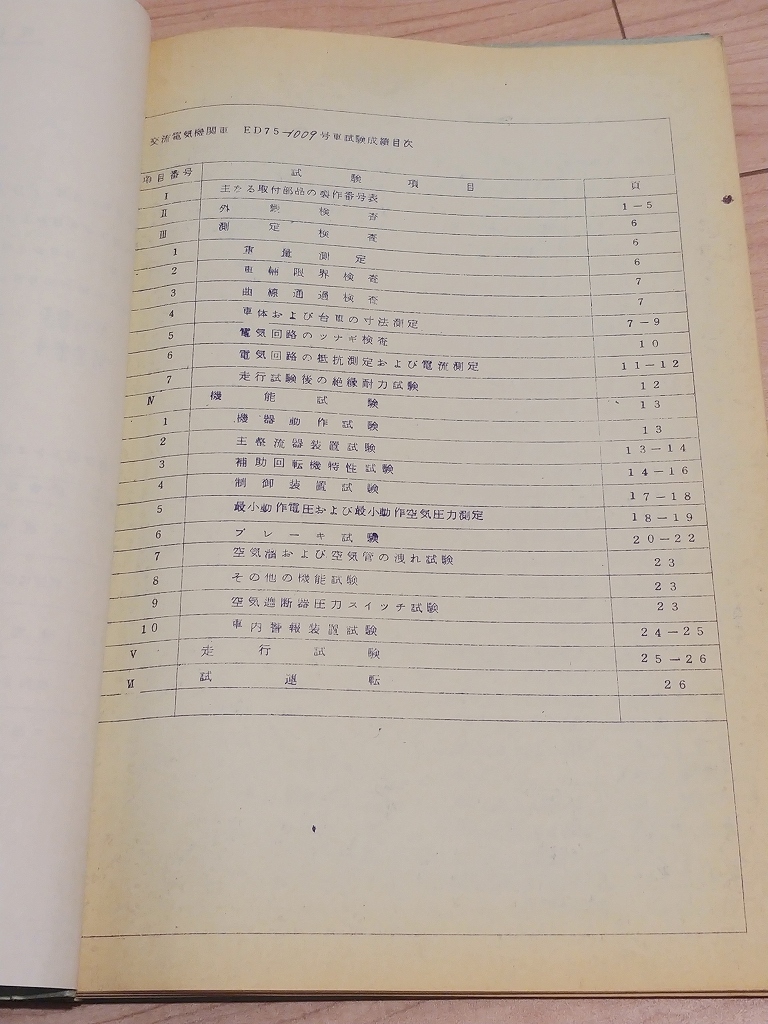 交流電気機関車 ED75-1009号車試験成績目次
項目番号 試験項目 頁
I 主たる取付部品の製作番号表 1-5
II 外観検査 6
III 測定検査 6
1 重量測定 6
2 車輛限界検査 7
3 曲線通過検査 7
4 車体および台車の寸法測定 7-9
5 電気回路のツナギ検査 10
6 電気回路の抵抗測定および電流測定 11-12
7 走行試験後の絶縁耐力試験 12
IV 機能試験 13
1 機器動作試験 13
2 主整流器装置試験 13-14
3 補助回転機特性試験 14-16
4 制御装置試験 17-18
5 最小動作電圧および最小動作空気圧力測定 18-19
6 ブレーキ試験 20-22
7 空気溜および空気管の洩れ試験 23
8 その他の機能試験 23
9 空気遮断器圧力スイッチ試験 23
10 車内警報装置試験 24-25
V 走行試験 25-26
VI 試運転 26